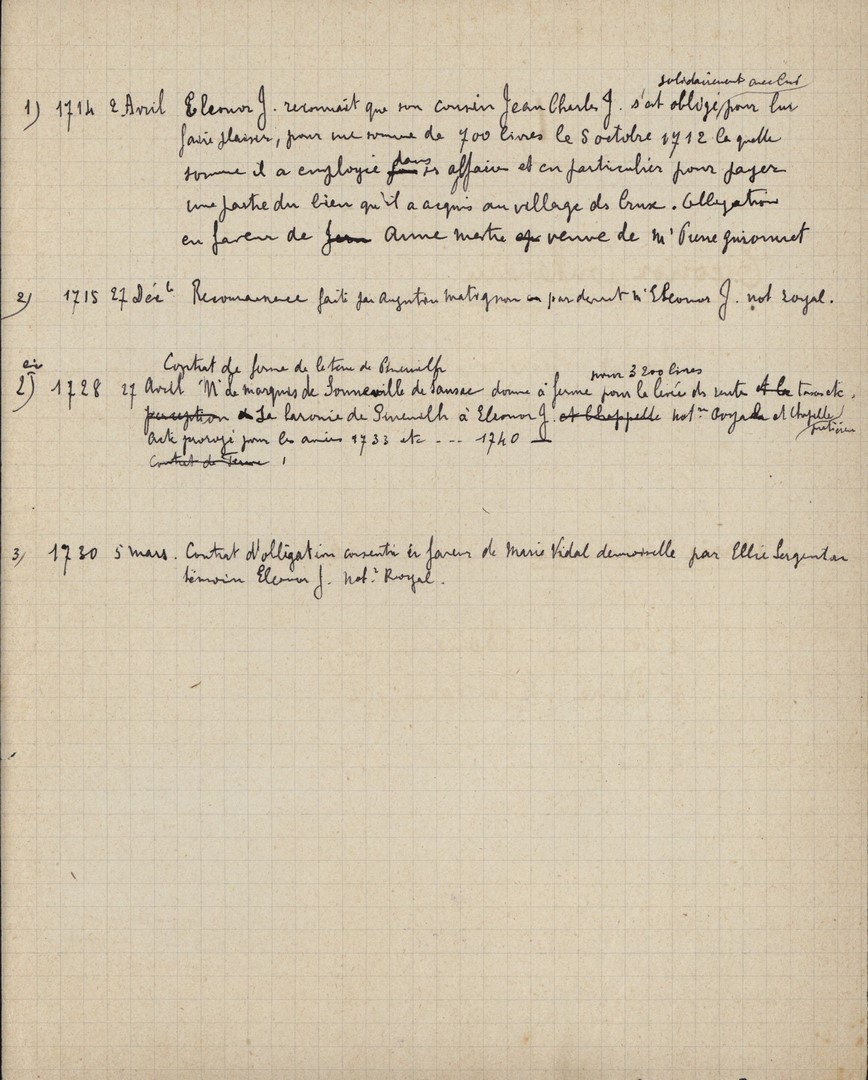 solidairement avec lui
1) 1714 2 Avril Eleonor J. reconnait que son cousin Jean Charles J. s'est obligé pour lui
faire plaisir, pour une somme de 700 livres le 5 octobre 1712 la quelle
somme il a employée dans ses affaires et en particulier pour payer
une partie du bien qu'il a acquis au village de . Obligation
en faveur de Jean Anne veuve de Mr Pierre
2) 1715 27 Déc Reconnaissance faite par par devant Mr Eleonor J. not royal.
Contrat de ferme de la terre de
bis pour 3200 livres
2) 1728 27 Avril Mr le marquis de de donne à ferme pour la levée des rentes et la
perception de la baronie de à Eleonor J. et Chappelle not royal et Chapelle
acte prorogé pour les années 1733 etc --- 1740
Contrat de Ferme
3) 1730 5 mars. Contrat d'obligation consenti en faveur de Marie Vidal demoiselle par Ellie
témoin Eleonor J. Not. Royal.